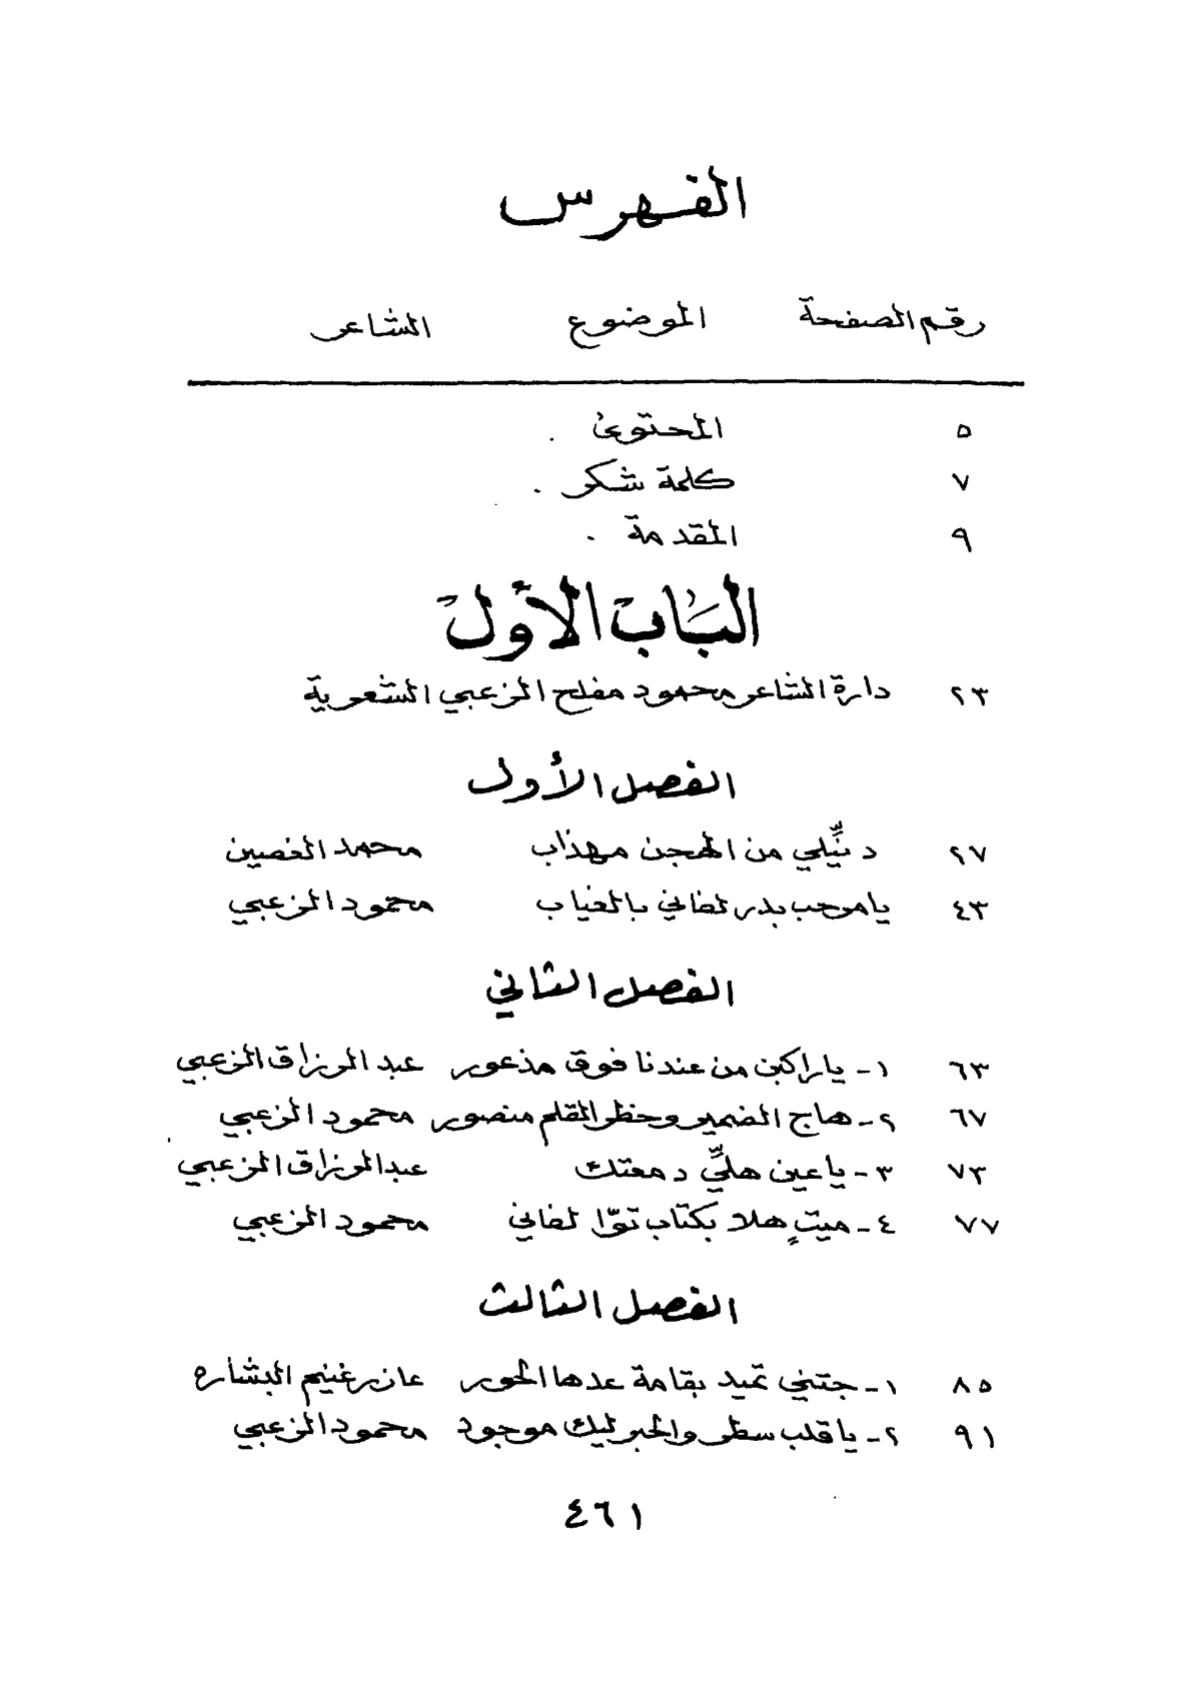 الفهرس
رقم الصفحة الموضوع الشاعر
٥ المحتوى .
٧ كلمة شكر .
٩ المقدمة .
الباب الأول
٢٣ دارة الشاعر محمود مفلح الزعبي الشعرية
الفصل الأول
٢٧ دنّيلي من الهجن مهذاب محمد الغصين
٤٣ يامرحب بدر لفاني بالغياب محمود الزعبي
الفصل الثاني
٦٣ ١- ياراكبن من عندنا فوق مذعور عبدالرزاق الزعبي
٦٧ ٢- هاج الضمير وحظر القلم منصور محمود الزعبي
٧٣ ٣- ياعين هلّي دمعتك عبدالرزاق الزعبي
٧٧ ٤- ميتٍ هلا بكتاب توّا لفاني محمود الزعبي
الفصل الثالث
٨٥ ١- جتني تميد بقامة عدها الحور غنيم البشاره
٩١ ٢- ياقلب سطر والخبر ليك موجود محمود الزعبي
٤٦١